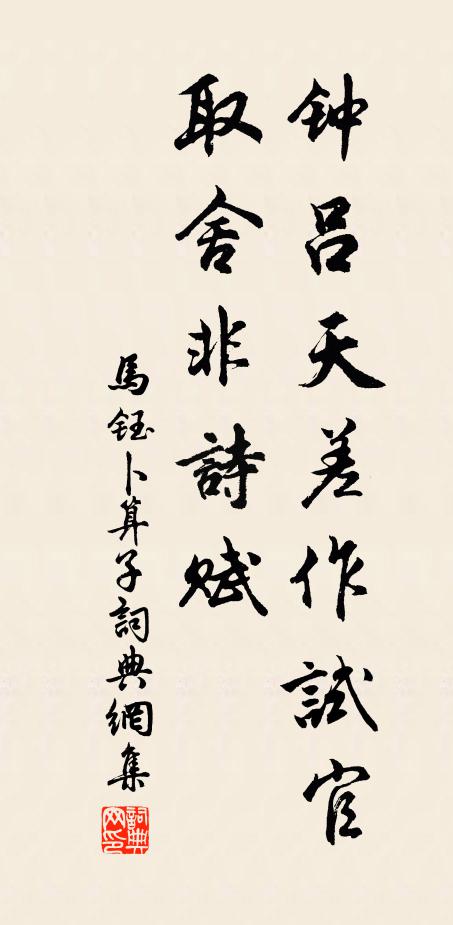 钟吕天差作試官
取舍非詩賦
馬鈺卜算子詞典網集
詞典网印